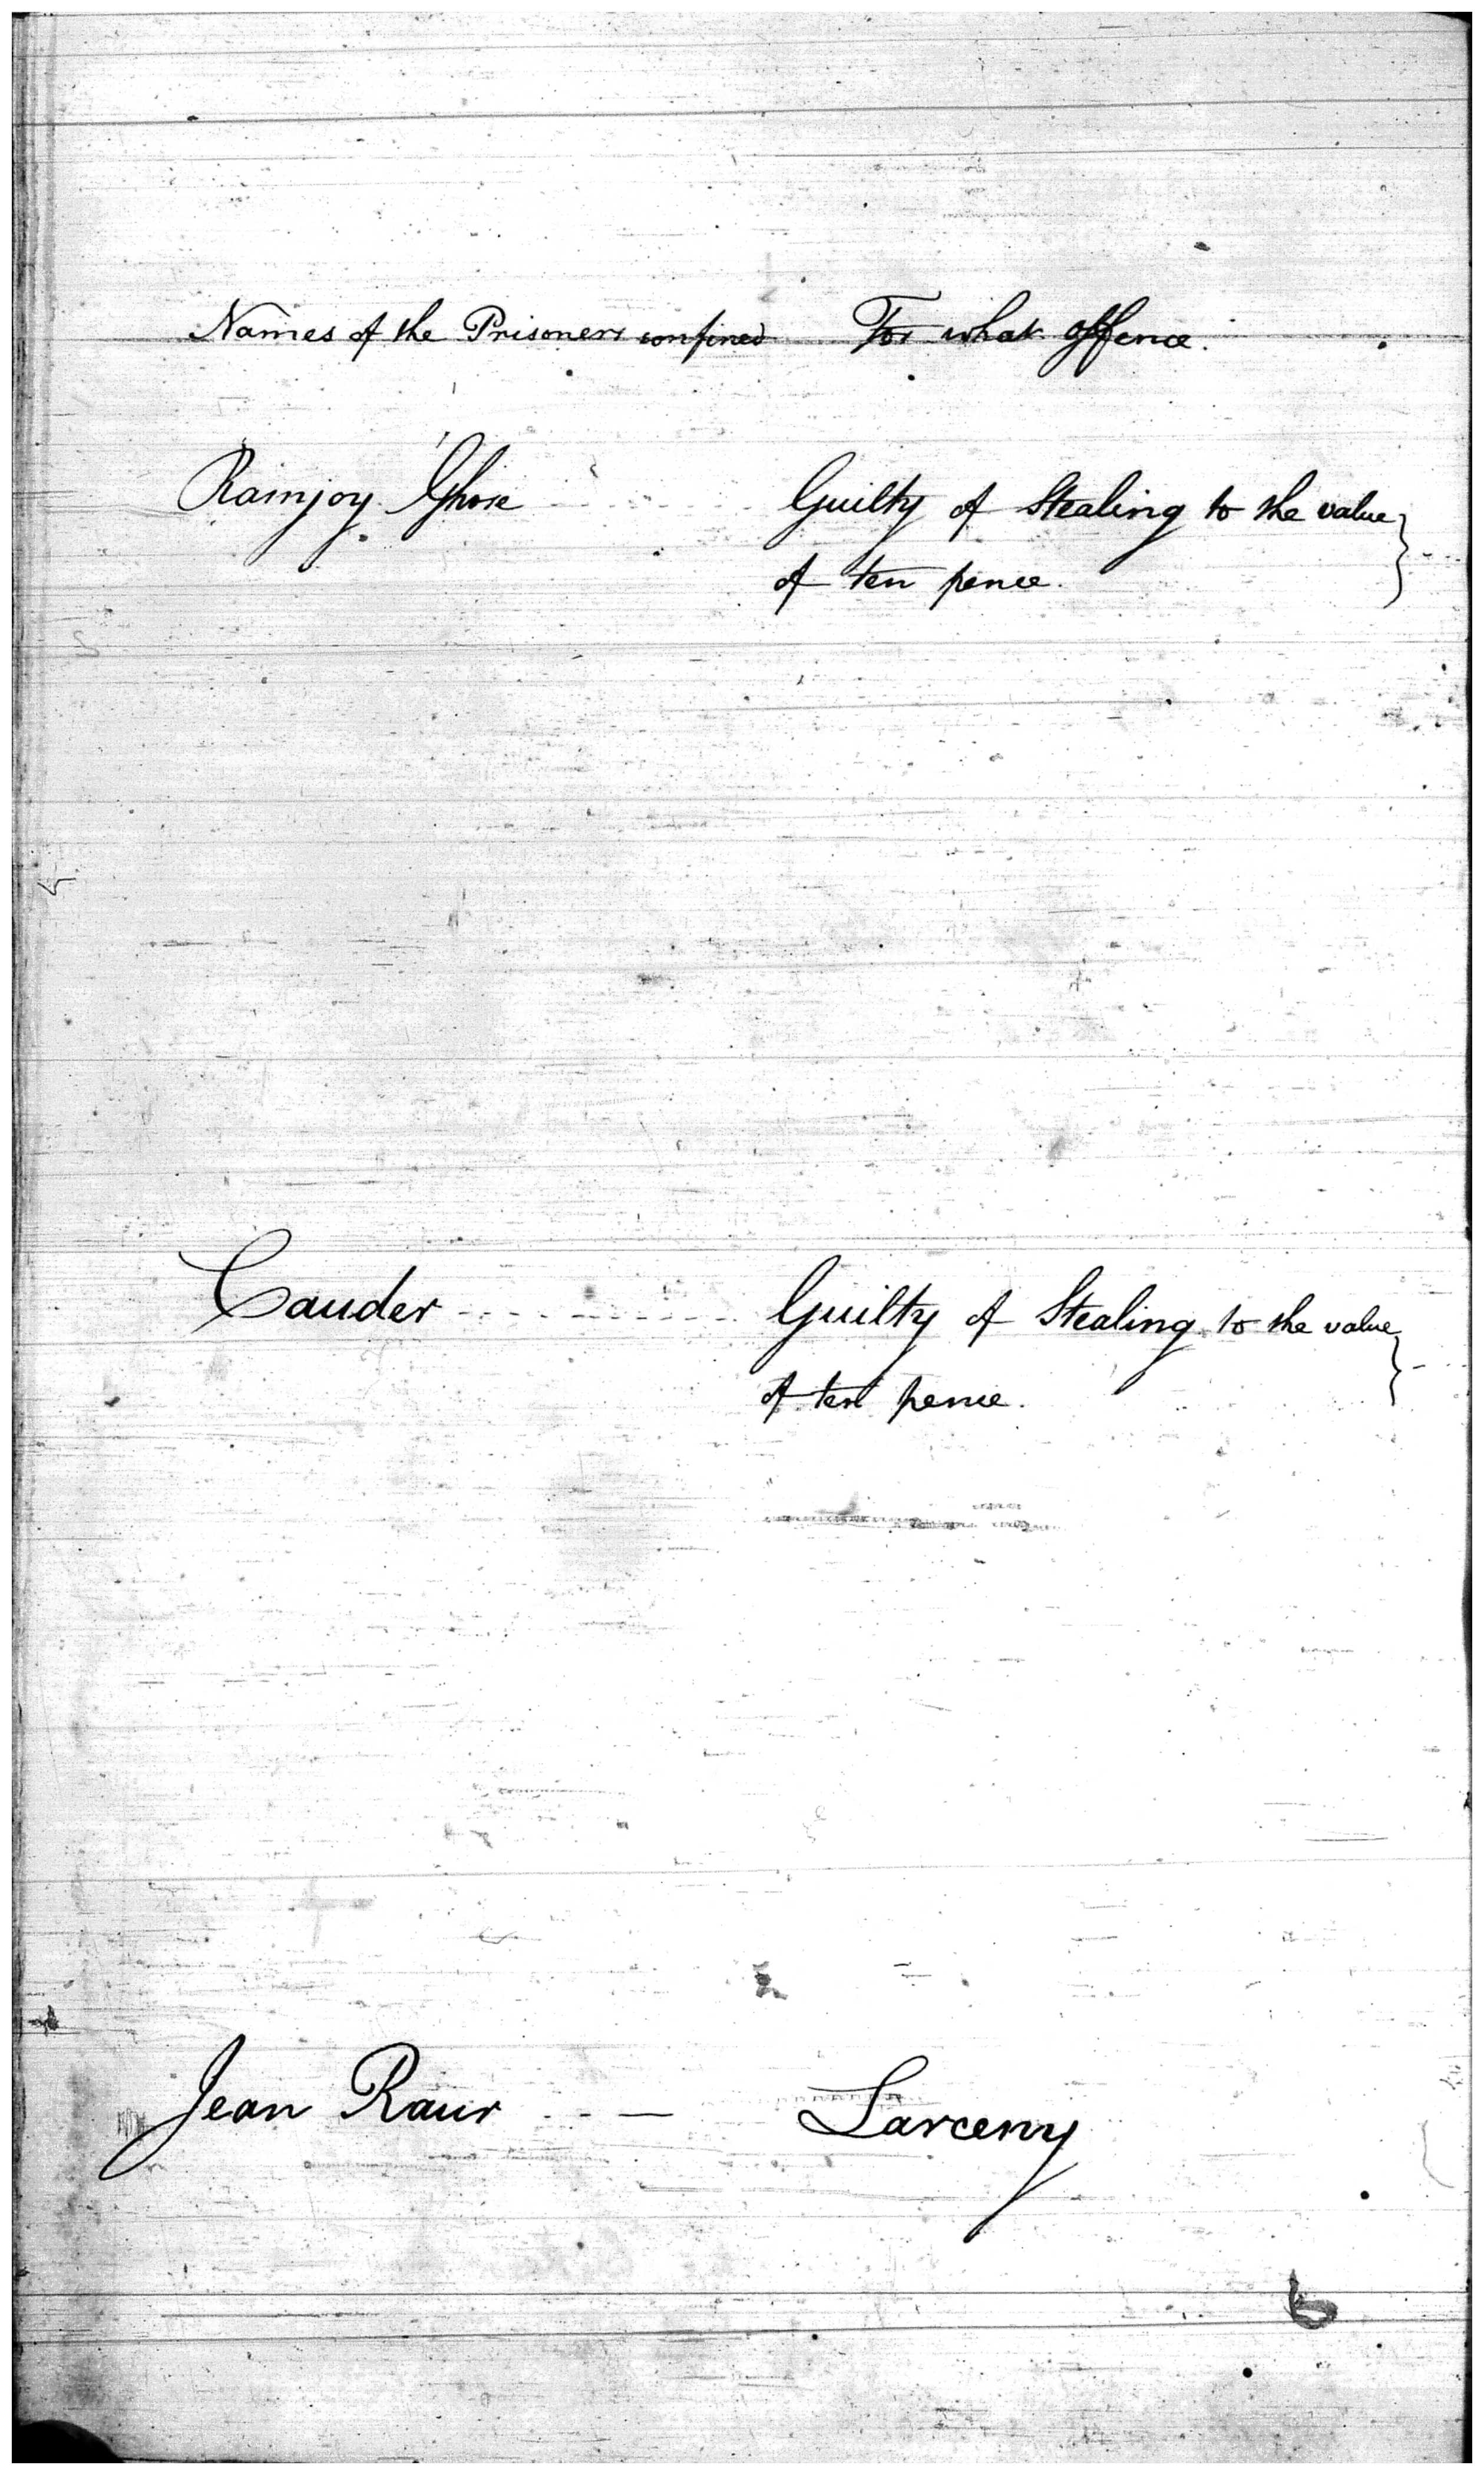 Names of the Prisoners confined For what offence.
Ramjoy Ghose Guilty of Stealing to the value
of ten pence.
Cauder Guilty of Stealing to the value
of ten pence.
Jean Raur Larceny
6